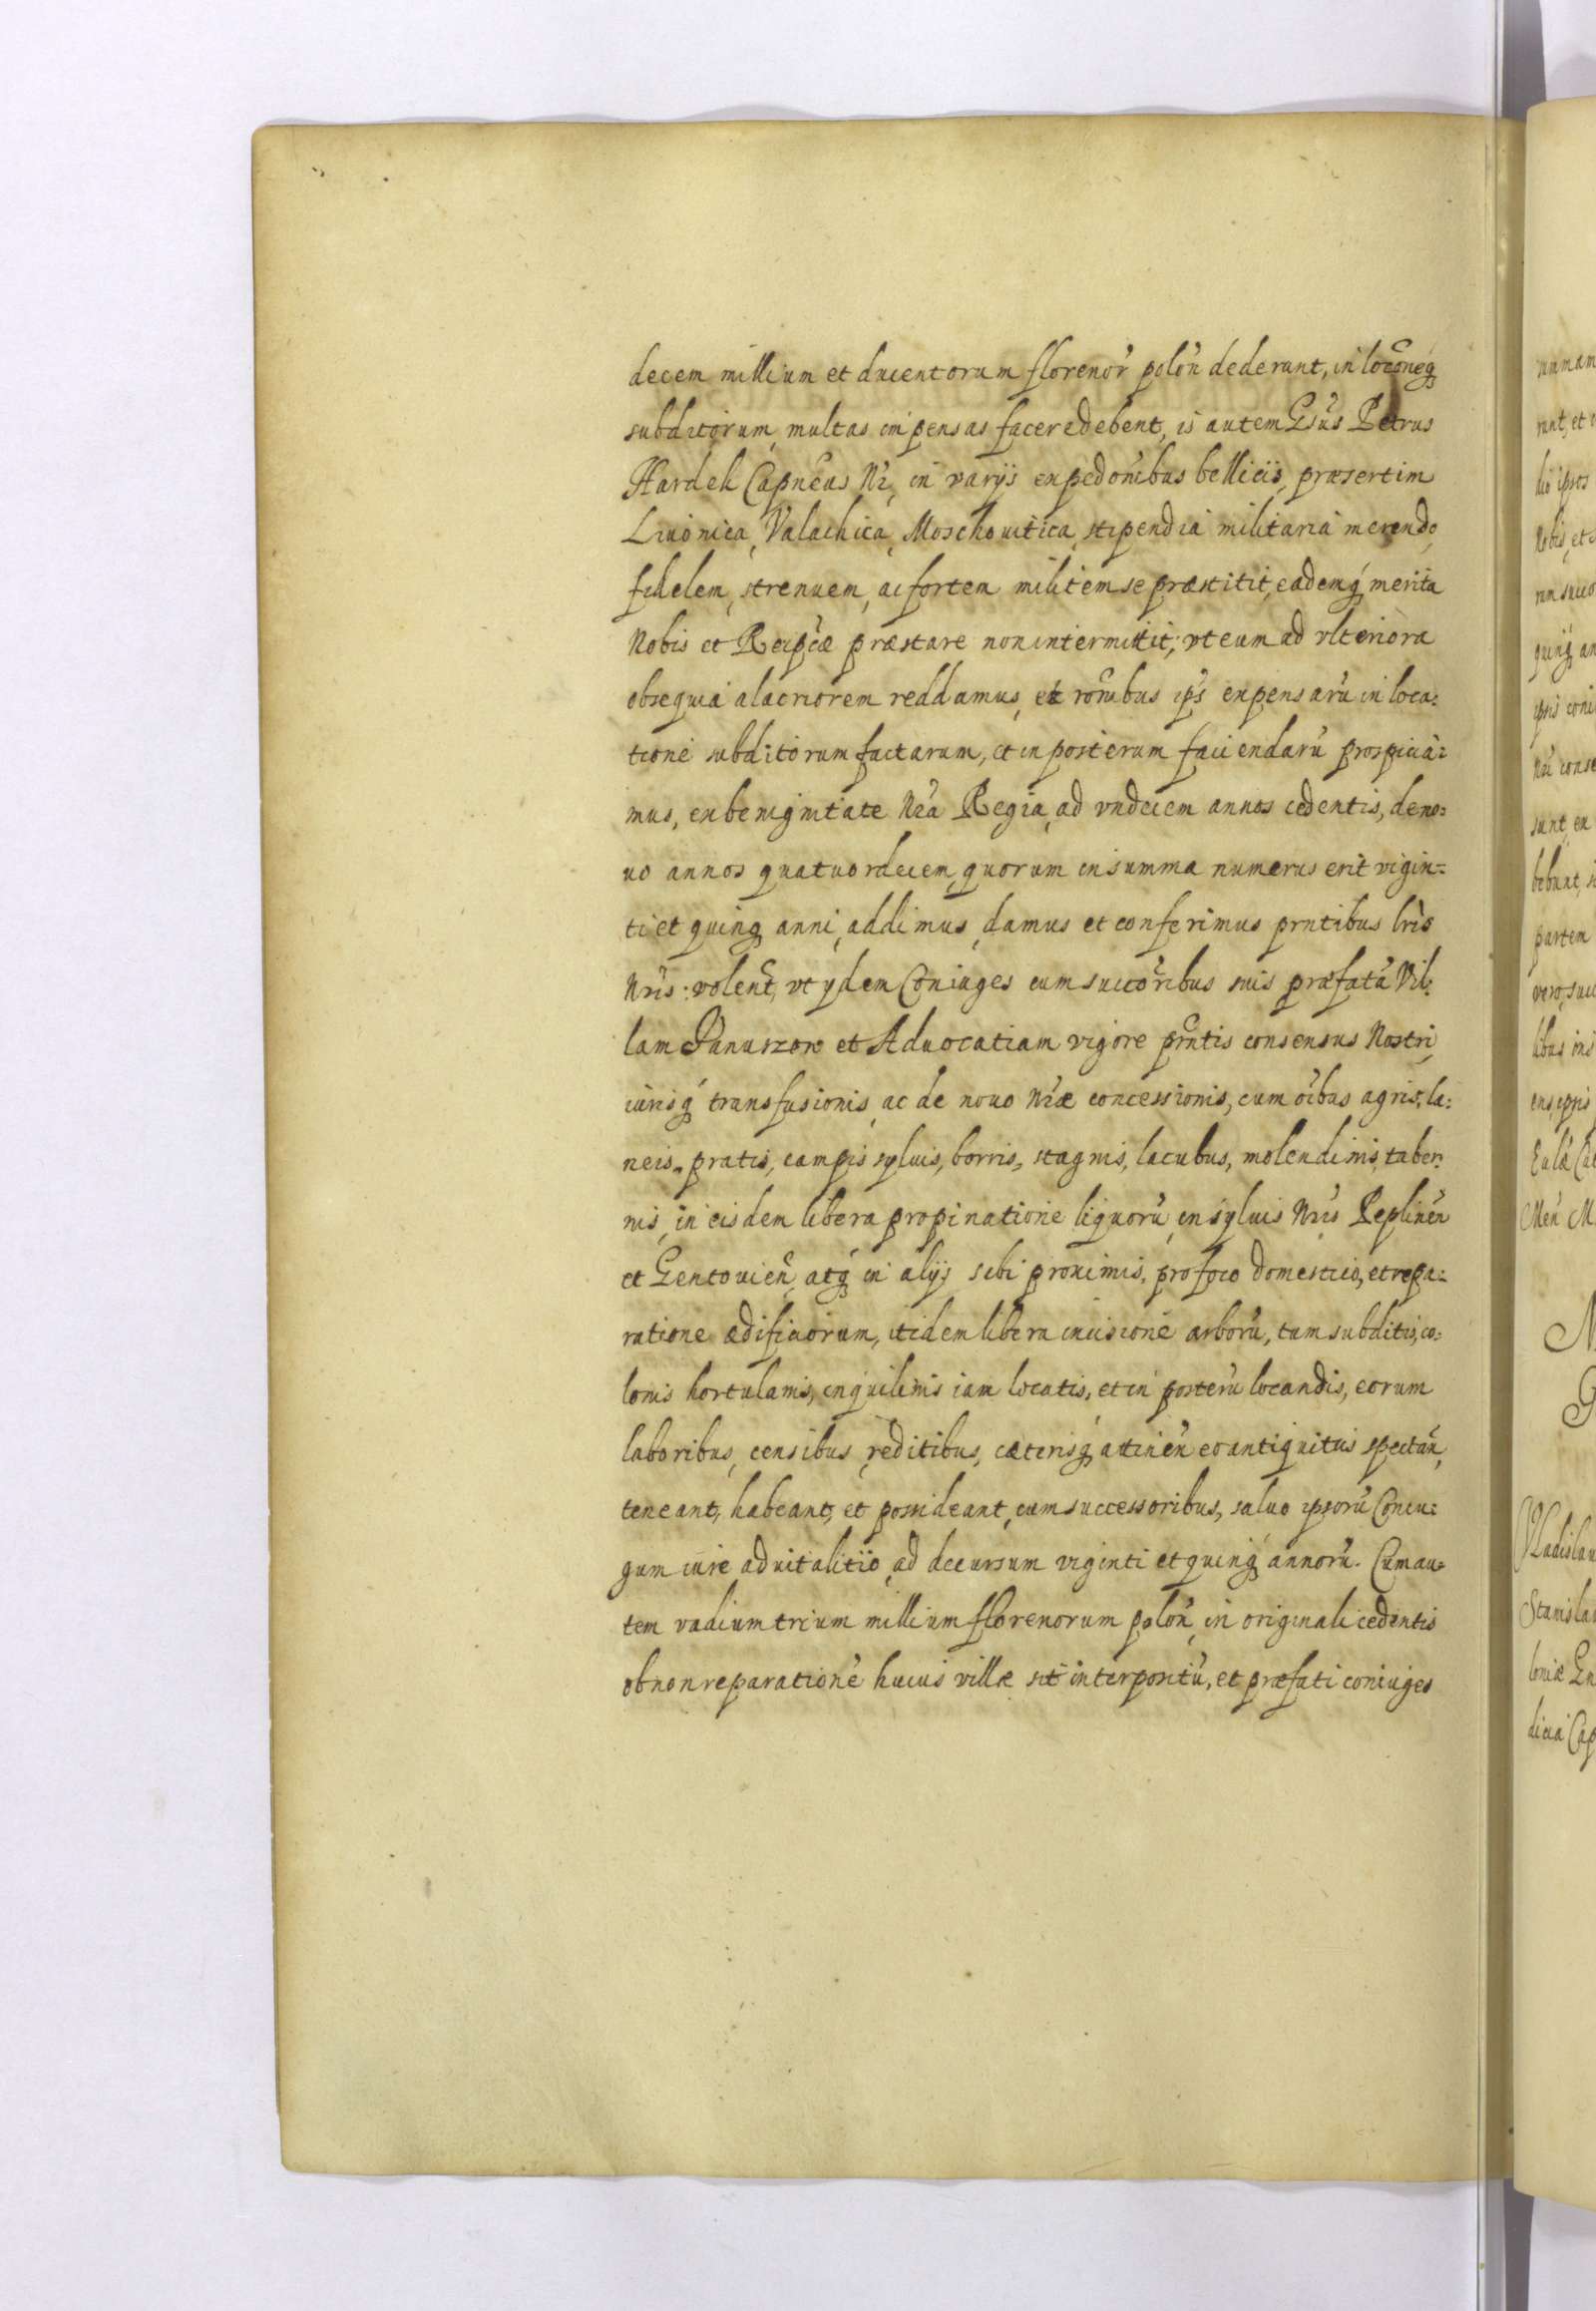 decem millium et ducentorum florenor̃ polõn dederunt, in locõneq́
subditorum, multas inpensas facere debent, is autem Gsũs Petrus
Hardek Capnẽus Nr̃, in varijs expedõnibus bellicis, præsertim
Liuonica, Valachica, Moschouitica, stipendia militaria merendo,
fidelem, strenuem, ac fortem militem se præstitit, eademq́ merita
Nobis et Reipcæ præstare non intermittit; vt eum ad vlteriora
obsequia alacriorem reddamus, et rõnibus ips̃ expensarũ in loca:
tione subditorum factarum, et in posterum faciendarũ prospicia:
mus, ex benignitate Nrã Regia, ad vndecem annos cedentis, deno:
uo annos quatuordecem, quorum in summa numerus erit vigin:
ti et quinq́ anni, addimus, damus et conferimus prntibus lr̃is
Nr̃is: volent̃, vt ydem Coniuges cum succõribus suis præfatã Vil:
lam Januszow et Aduocatiam vigore prñtis consensus Nostri,
iurisq́ transfusionis, ac de nouo Nr̃æ concessionis, cum oĩbus agris, la:
neis, pratis, campis syluis, borris, stagnis, lacubus, molendinis, taber:
nis, in eisdem libera propinatione liquorũ, in syluis Nr̃is Replinẽn
et Gentouieñ, atq́ in alijs sibi proximis, pro foco domestico, et repa:
ratione ædificiorum, itidem libera incisione arborũ, tum subditis, co:
lonis hortulanis, inquilinis iam locatis, et in posterũ locandis, eorum
laboribus, censibus, reditibus, cæterisq́ attinẽn eo antiquitus spectãn,
teneant, habeant, et possideant, cum successoribus, saluo ipsorũ Coniu:
gum iure aduitalitio, ad decursum viginti et quinq́ annorũ. Cum au:
tem vadium trium millium florenorum polõn, in originali cedentis
ob non reparationẽ huius villæ sit interpositũ, et præfati coniuges